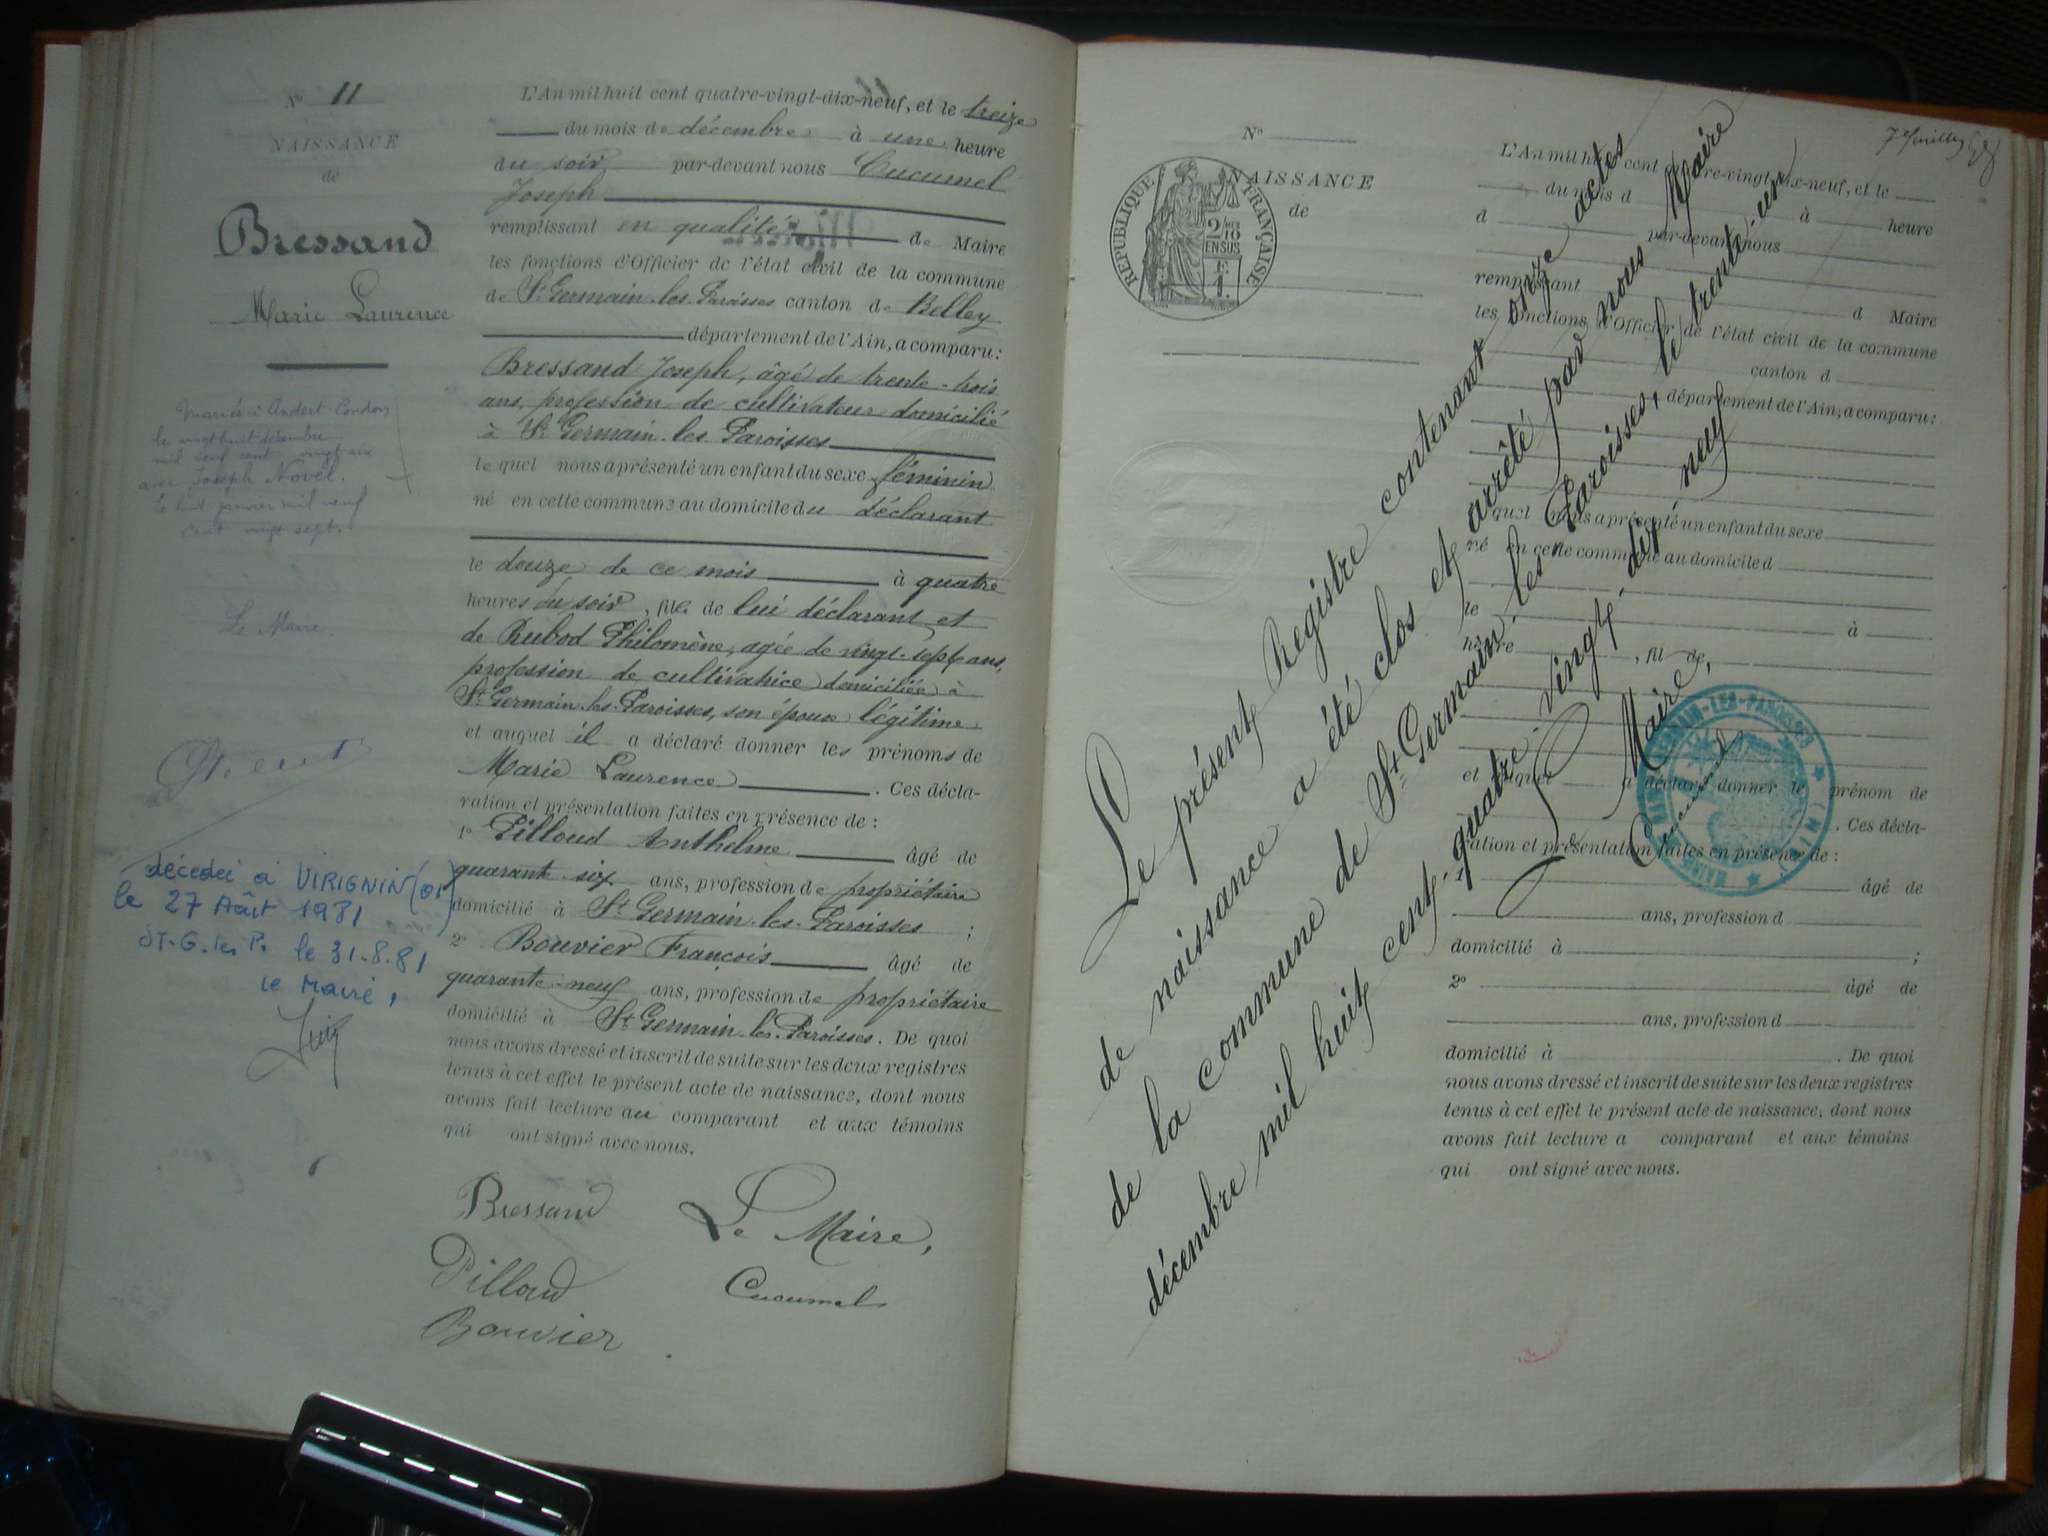 N° 11
NAISSANCE
de
Bressand
Marie Laurence
Mariée à Andert-Condon
le vingt huit décembre
mil neuf cent vingt six
avec Joseph Novel.
Le huit janvier mil neuf
cent vingt sept.
Le Maire.
décédée à VIRIGNIN (01)
le 27 Août 1981
ST-G. les P. le 31.8.81
le Maire,
L'An mil huit cent quatre-vingt-dix-neuf, et le treize
du mois de décembre à une heure
du soir par-devant nous Cucumel
Joseph
remplissant en qualité de Maire
les fonctions d'Officier de l'état civil de la commune
de St Germain-les-Paroisses canton de Belley
département de l'Ain, a comparu:
Bressand Joseph, âgé de trente-trois
ans, profession de cultivateur domicilié
à St Germain-les-Paroisses
le quel nous a présenté un enfant du sexe féminin
né en cette commune au domicile du déclarant
le douze de ce mois à quatre
heures du soir, fille de lui déclarant et
de Rubod Philomène, agée de vingt-sept ans,
profession de cultivatrice domiciliée à
St Germain-les-Paroisses, son épouse légitime
et auquel il a déclaré donner les prénoms de
Marie Laurence. Ces décla-
ration et présentation faites en présence de:
1° Pilloud Anthelme âgé de
quarante-six ans, profession de propriétaire
domicilié à St Germain-les-Paroisses ;
2° Bouvier François âgé de
quarante-neuf ans, profession de propriétaire
domicilié à St Germain-les-Paroisses. De quoi
nous avons dressé et inscrit de suite sur les deux registres
tenus à cet effet le présent acte de naissance, dont nous
avons fait lecture au comparant et aux témoins
qui ont signé avec nous.
Bressand
Le Maire,
Pilloud
Cucumel
Bouvier
7e
N°
NAISSANCE
de
RÉPUBLIQUE FRANÇAISE
2/10
EN SUS
L'An mil huit cent quatre-vingt-dix-neuf, et le
du mois d
d à heure
par-devant nous
remplissant
d Maire
les fonctions d'Officier de l'état civil de la commune
canton d
département de l'Ain, a comparu:
quel nous a présenté un enfant du sexe
né en cette commune au domicile d
le à
heure , fil de
et auquel a déclaré donner le prénom de
. Ces décla-
ration et présentation faites en présence de:
1° âgé de
ans, profession d
domicilié à ;
2° âgé de
ans, profession d
domicilié à . De quoi
nous avons dressé et inscrit de suite sur les deux registres
tenus à cet effet le présent acte de naissance, dont nous
avons fait lecture a comparant et aux témoins
qui ont signé avec nous.
Le présent Registre contenant onze actes
de naissance a été clos et arrêté par nous Maire
de la commune de St Germain-les-Paroisses, le trente-un
décembre mil huit cent-quatre-vingt-dix-neuf
Le Maire,
Cucumel
MAIRIE DE ST GERMAIN-LES-PAROISSES (AIN)